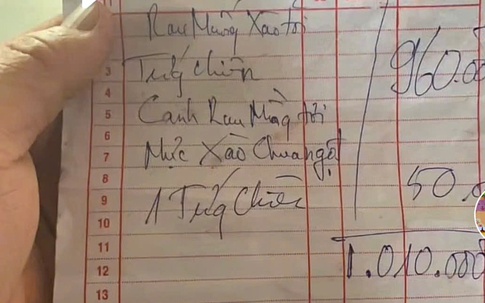 Rau Muống Xào tỏi
3 Trứng Chiên 960.00
4
5 Canh Rau Mồng tơi
6
7 Mực Xào Chua ngọt
8 50.0
9 1 Trứng Chiên
10
11
12 1.010.000
13